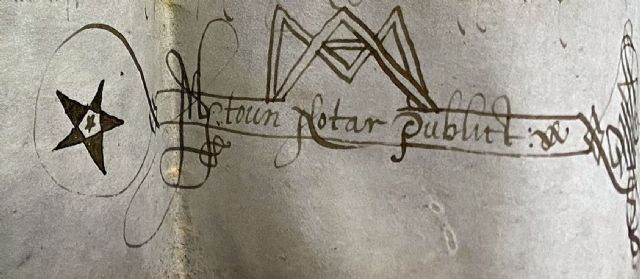 Uptoun Notar Publict :